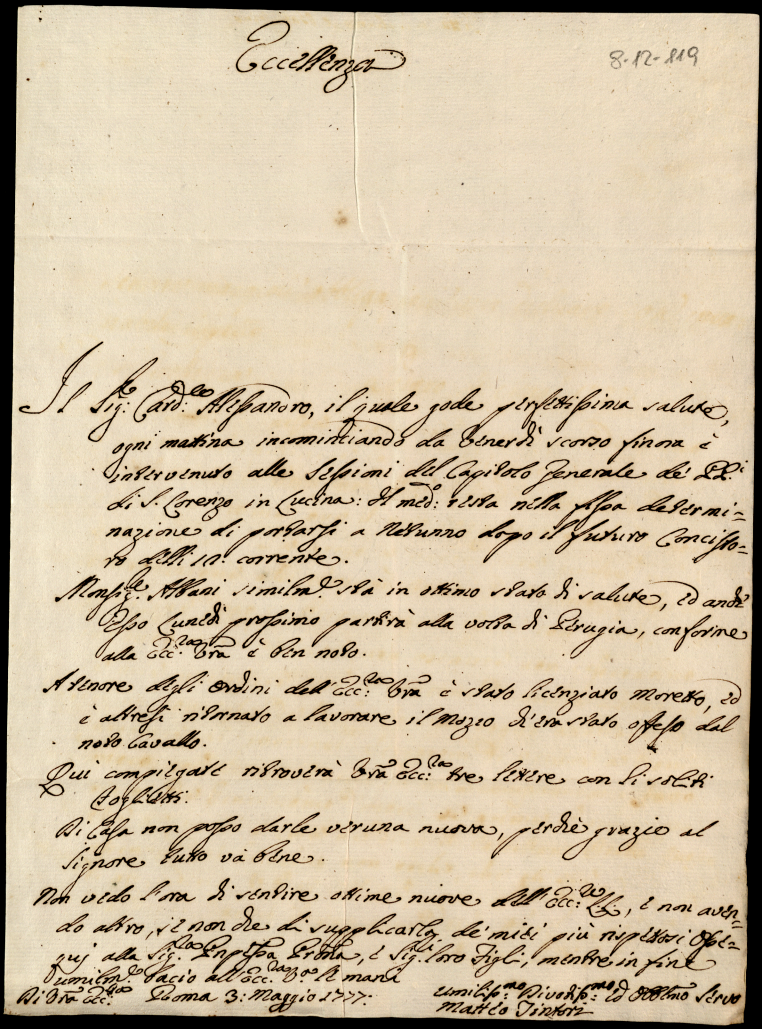 Eccellenza
8-12-119
Il Sig:re Card:le Alessandro, il quale gode perfettissima salute,
ogni mattina incominciando da Venerdì scorso finora è
intervenuto alle Sessioni del Capitolo Generale de' PP:i
di S. Lorenzo in Lucina: Il med:o resta nella fissa determi=
nazione di portarsi a Nettunno dopo il futuro Concisto=
ro delli 12. corrente.
Monsig:re Albani similm:e stà in ottimo stato di salute, ed anch'
Esso Lunedì prossimo partirà alla volta di Perugia, conforme
alla Ecc:za Vrã è ben noto.
A tenore degli ordini dell'Ecc:za Vrã è stato licenziato Moretto, ed
è altresì ritornato a lavorare il Mozzo ch'era stato offeso dal
noto Cavallo.
Qui compiegate ritroverà Vrã Ecc:za tre lettere con li soliti
Foglietti.
Di Casa non posso darle veruna nuova, perchè grazie al
Signore tutto và bene.
Non vedo l'ora di sentire ottime nuove dell'Ecc:ze LL:, e non aven=
do altro, se non che di supplicarla de' miei più rispettosi Osse=
quj alla Sig:ra Pnpessa Prõna, e Sig:li loro Figli, mentre in fine
umilm:e bacio all'Ecc:za V:a le mani
Di Vrã Ecc:za Roma 3: Maggio 1777:
Umiliss:mo Divotiss:mo ed Obblmo Servo
Matteo Tintori